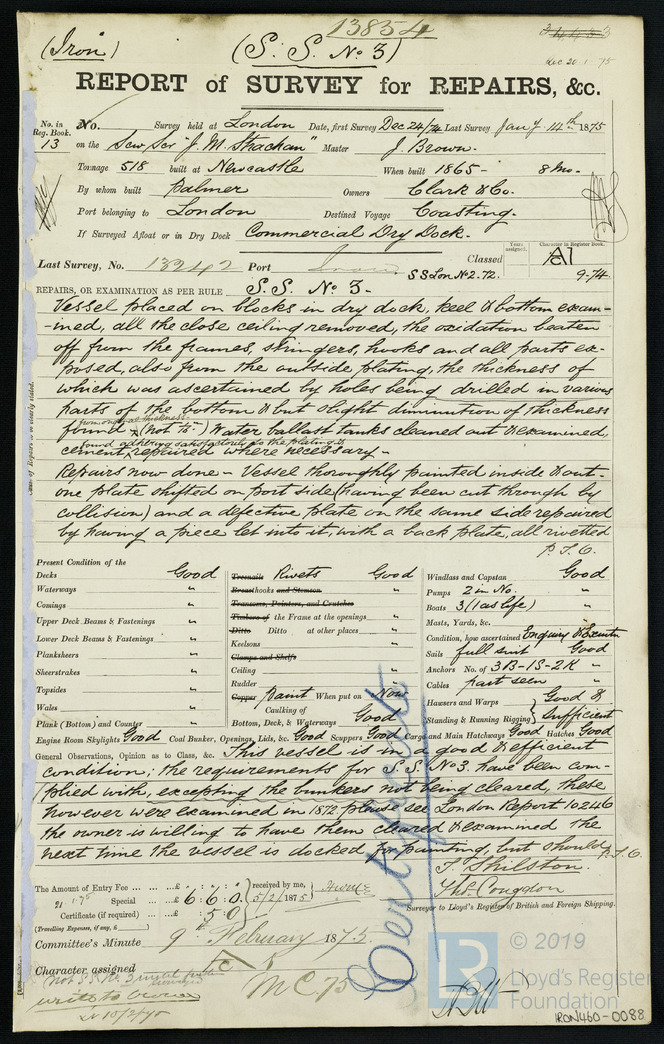 13854
(Iron)
(S. S. No 3)
Dec 20 1 75
REPORT of SURVEY for REPAIRS, &c.
No. in Reg. Book. 13
No. Survey held at London Date, first Survey Dec 24/74 Last Survey Jany 14th 1875
on the Scw Scr "J. M. Strachan" Master J. Brown.
Tonnage 518 built at Newcastle When built 1865 - 8 Mo.
By whom built Palmer Owners Clark & Co.
Port belonging to London Destined Voyage Coasting.
If Surveyed Afloat or in Dry Dock Commercial Dry Dock.
Last Survey, No. 13242 Port
Classed
Years assigned.
Character in Register Book.
A1
SS Lon No 2. 72. 9.74
REPAIRS, OR EXAMINATION AS PER RULE S. S. No 3 -
Vessel placed on blocks in dry dock, keel & bottom exam-
-ined, all the close ceiling removed, the oxidation beaten
off from the frames, stringers, hooks and all parts ex-
posed, also from the outside plating, the thickness of
which was ascertained by holes being drilled in various
parts of the bottom & but slight diminution of thickness
from original thickness
found (not ) Water ballast tanks cleaned out & examined,
found adhering satisfactorily to the plating &
cement, repaired where necessary -
Repairs now done - Vessel thoroughly painted inside & out -
one plate shifted on port side (having been cut through by
collision) and a defective plate on the same side repaired
by having a piece let into it, with a back plate, all rivetted
P.T.O.
Present Condition of the
Decks Good
Waterways "
Comings "
Upper Deck Beams & Fastenings "
Lower Deck Beams & Fastenings "
Planksheers "
Sheerstrakes "
Topsides "
Wales "
Plank (Bottom) and Counter "
Treenails Rivets Good
Breasthooks and Stemson "
Transoms, Pointers, and Crutches
Timbers of the Frame at the openings "
Ditto Ditto at other places "
Keelsons "
Clamps and Shelfs
Ceiling "
Rudder "
Copper Paint When put on Now
Caulking of
Bottom, Deck, & Waterways Good
Windlass and Capstan Good
Pumps 2 in No. "
Boats 3 (1 as life) "
Masts, Yards, &c. "
Condition, how ascertained Enquiry & Examtn
Sails full suit Good
Anchors No. of 3B-1S-2K "
Cables part seen "
Hawsers and Warps Good &
Standing & Running Rigging sufficient
Engine Room Skylights Good Coal Bunker, Openings, Lids, &c. Good Scuppers Good Cargo and Main Hatchways Good Hatches Good
General Observations, Opinion as to Class, &c. This vessel is in a good & efficient
condition; the requirements for S.S. No 3. have been com-
plied with, excepting the bunkers not being cleared, these
however were examined in 1872 please see London Report 10246
the owner is willing to have them cleared & examined the
next time the vessel is docked for painting, but should
P.T.O.
The Amount of Entry Fee £ : :
Special £ 6 : 6 : 0
Certificate (if required) : 5 0
(Travelling Expenses, if any, £ )
received by me,
5/2/1875
T. Shilston.
Ths. Congdon
Surveyor to Lloyd's Register of British and Foreign Shipping.
Committee's Minute 9th February 1875.
Character assigned
write to Owner
10/2/75
MC. 75
© 2019
LR
Lloyd's Register
Foundation
IRON460-0088